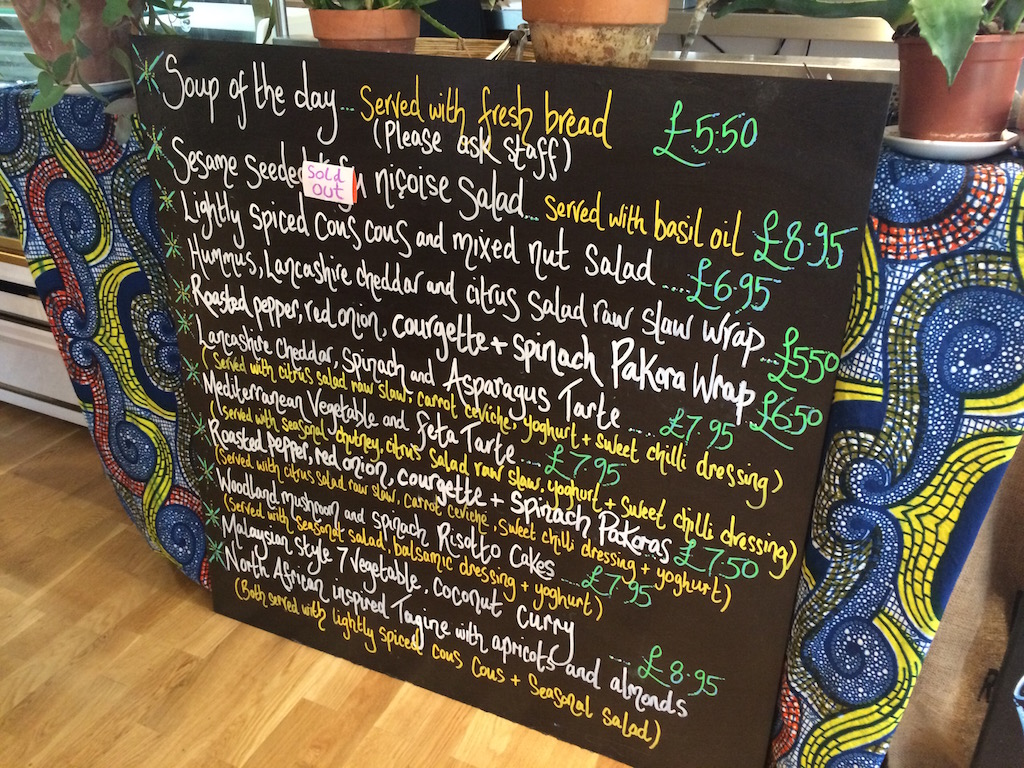 Soup of the day... Served with fresh bread £5.50
(Please ask staff)
Sesame Seeded niçoise Salad... served with basil oil £8.95
Sold
out
Lightly Spiced Cous cous and mixed nut Salad .... £6.95
Hummus, Lancashire cheddar and citrus Salad raw slaw wrap ... £5.50
Roasted pepper, red onion, courgette + spinach Pakora Wrap £6.50
Lancashire Cheddar, Spinach and Asparagus Tarte ..... £7.95
(Served with citrus salad raw slaw, carrot ceviche, yoghurt + sweet chilli dressing)
Mediterranean Vegetable and feta Tarte .... £7.95
(served with seasonal chutney, citrus salad raw slaw, yoghurt + sweet chilli dressing)
Roasted pepper, red onion, courgette + Spinach Pakoras £7.50
(Served with citrus salad raw slaw, carrot ceviche, sweet chilli dressing + yoghurt)
Woodland mushroom and spinach Risotto Cakes .... £7.95
(Served with seasonal salad, balsamic dressing + yoghurt)
Malaysian Style 7 Vegetable, Coconut Curry
North African inspired Tagine with apricots and almonds ... £8.95
(Both served with lightly spiced cous cous + Seasonal Salad)